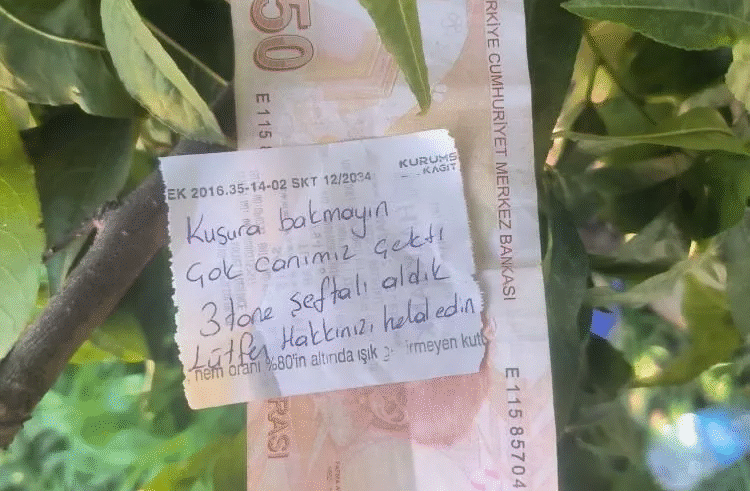 50
E 115
TÜRKİYE CUMHURİYET MERKEZ BANKASI
EK 2016.35-14-02 SKT 12/2034
KURUMS
KAĞIT
Kusura bakmayın
Çok canımız çekti
3 tane şeftali aldık
Lütfen Hakkınızı helal edin
nem oranı %80'in altında ışık g irmeyen kutu
E 115 85704
RASI